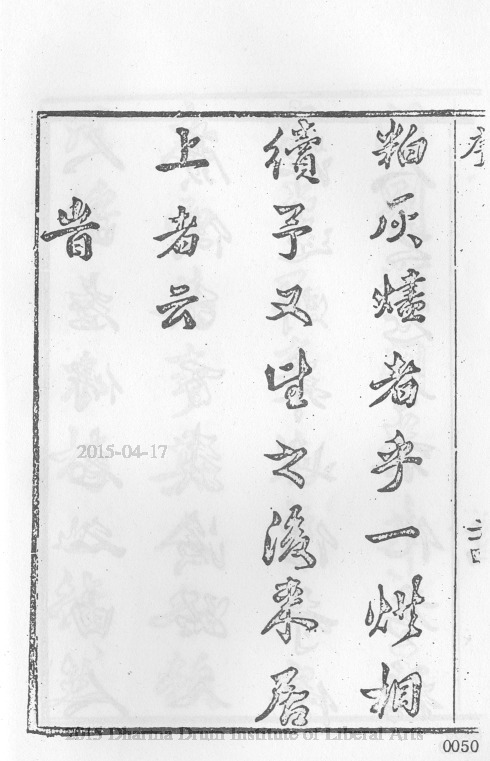 粕灰燼者乎一燈相
續予又望之後來居
上者云
旹
2015-04-17
2015 Dharma Drum Institute of Liberal Arts
0050